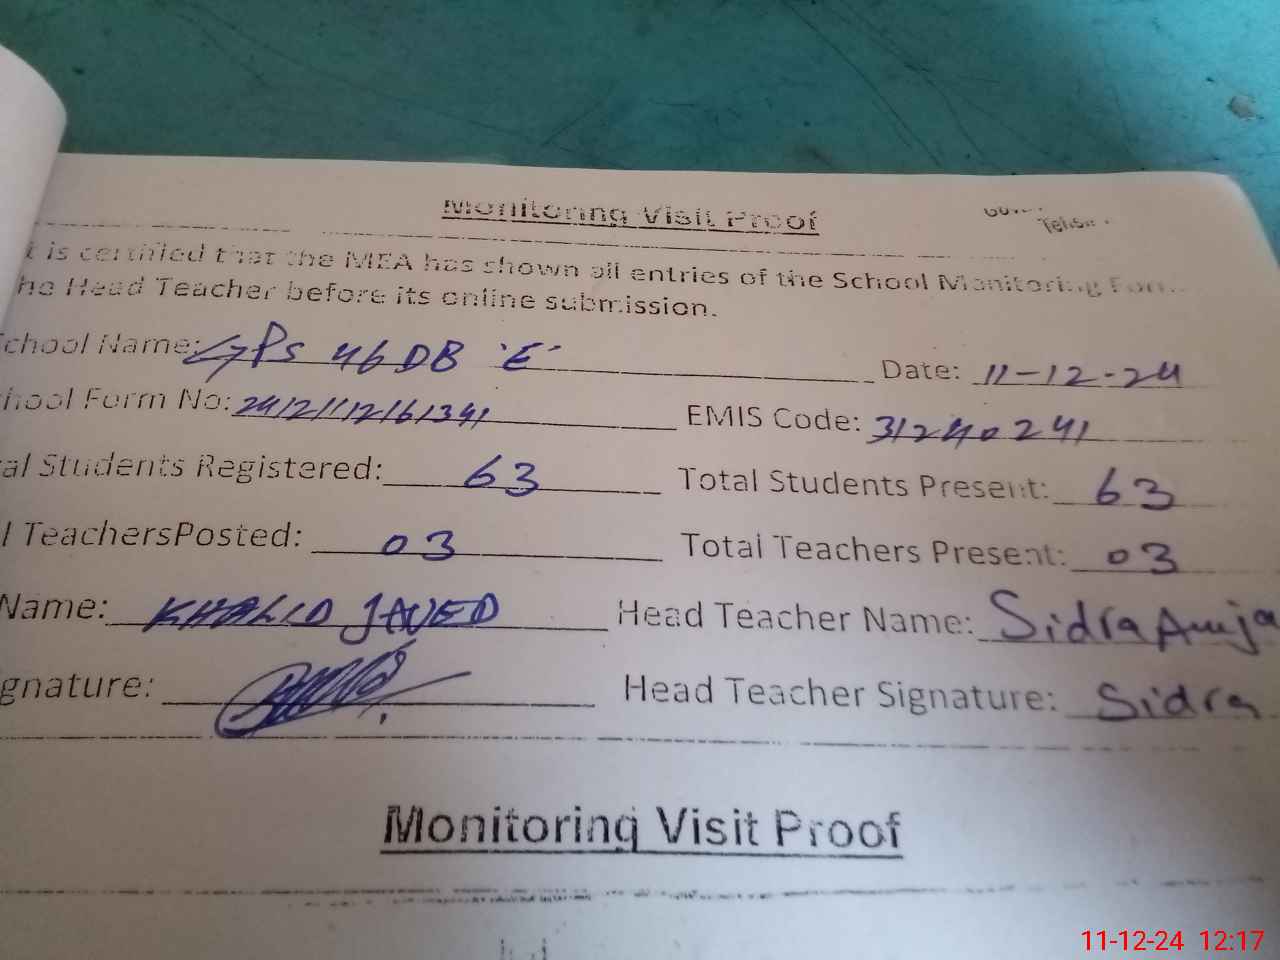 Monitoring Visit Proof
t is certified that the MEA has shown all entries of the School Monitoring Form
he Head Teacher before its online submission.
chool Name: GPS 46 DB 'E' Date: 11-12-24
hool Form No: EMIS Code: 31240241
al Students Registered: 63 Total Students Present: 63
l TeachersPosted: 03 Total Teachers Present: 03
Name: KHALID JAVED Head Teacher Name: Sidra Amja
gnature: Head Teacher Signature: Sidra
Monitoring Visit Proof
11-12-24 12:17